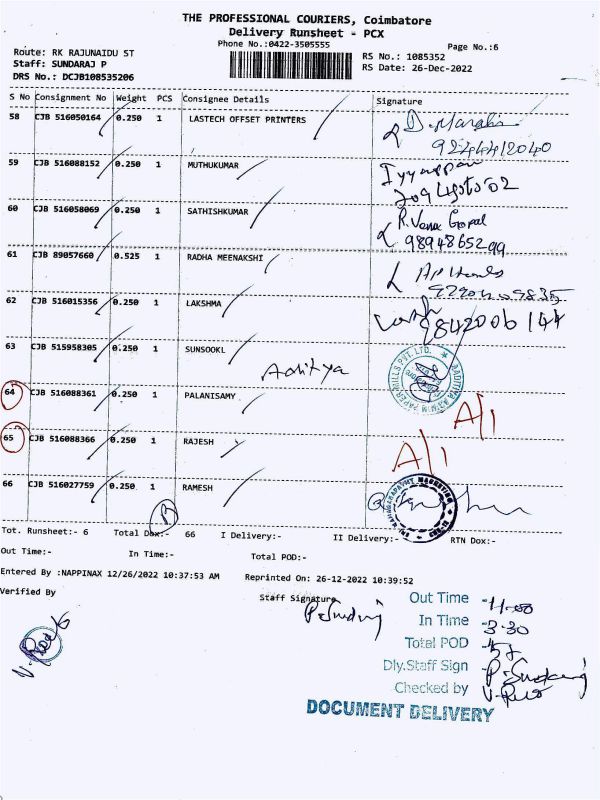 THE PROFESSIONAL COURIERS, Coimbatore
Delivery Runsheet - PCX
Phone No.:0422-3505555
Page No.:6
Route: RK RAJUNAIDU ST
Staff: SUNDARAJ P
DRS No.: DCJB108535206
RS No.: 1085352
RS Date: 26-Dec-2022
S No Consignment No Weight PCS Consignee Details Signature
58 CJB 516050164 0.250 1 LASTECH OFFSET PRINTERS
9244412040
59 CJB 516088152 0.250 1 MUTHUKUMAR Iyyappan
60 CJB 516058069 0.250 1 SATHISHKUMAR R. Venu Gopal
9894865299
61 CJB 89057660 0.525 1 RADHA MEENAKSHI
62 CJB 516015356 0.250 1 LAKSHMA
9842006144
63 CJB 515958305 0.250 1 SUNSOOKL
Aditya
AADITYA ASWIN PAPER MILLS PVT. LTD.
64 CJB 516088361 0.250 1 PALANISAMY A/1
65 CJB 516088366 0.250 1 RAJESH A/1
66 CJB 516027759 0.250 1 RAMESH
Tot. Runsheet:- 6 Total Dox:- 66 I Delivery:- II Delivery:- RTN Dox:-
Out Time:- In Time:- Total POD:-
Entered By :NAPPINAX 12/26/2022 10:37:53 AM Reprinted On: 26-12-2022 10:39:52
Verified By Staff Signature
Out Time - 11.00
In Time - 3.30
Total POD - 57
Dly.Staff Sign
Checked by
DOCUMENT DELIVERY